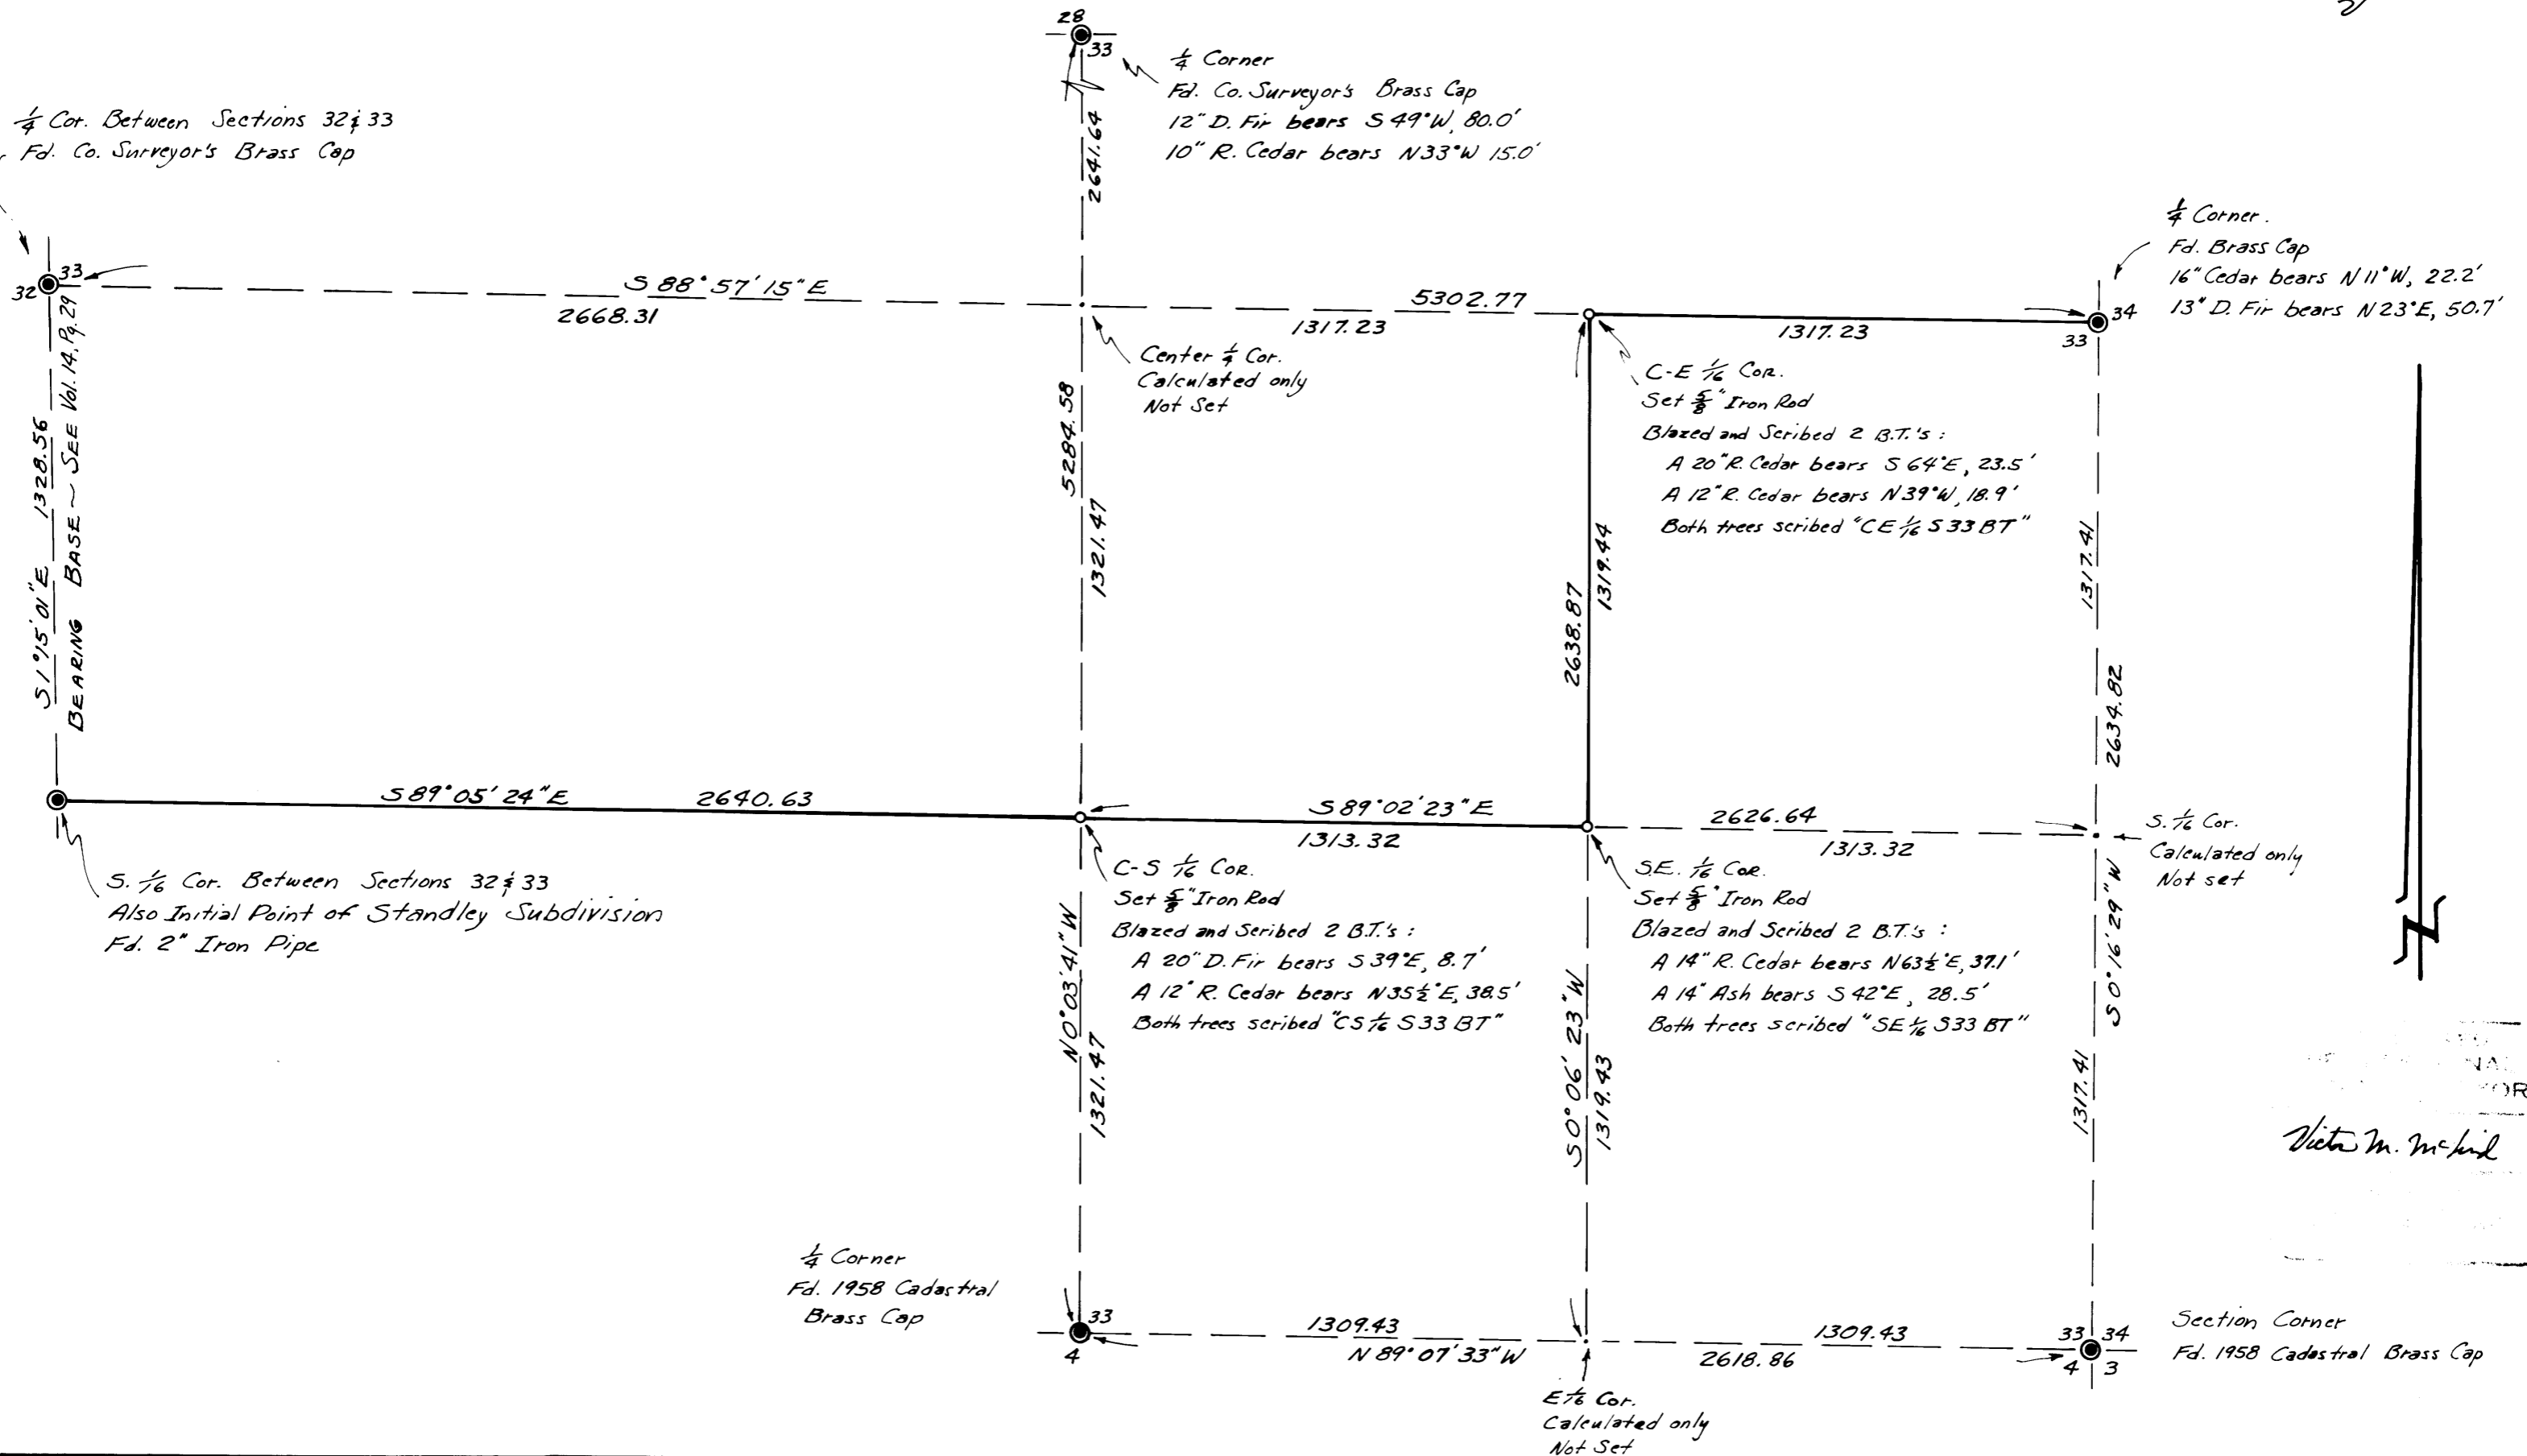 28
33
1/4 Corner
Fd. Co. Surveyor's Brass Cap
12" D. Fir bears S 49° W, 80.0'
10" R. Cedar bears N33°W 15.0'
1/4 Cor. Between Sections 32 & 33
Fd. Co. Surveyor's Brass Cap
2641.64
1/4 Corner.
Fd. Brass Cap
16" Cedar bears N 11° W, 22.2'
13" D. Fir bears N 23° E, 50.7'
33
32
S 88° 57' 15" E
2668.31
5302.77
1317.23
1317.23
34
33
Center 1/4 Cor.
Calculated only
Not Set
C-E 1/16 COR.
Set 5/8" Iron Rod
Blazed and Scribed 2 B.T.'s :
A 20" R. Cedar bears S 64° E, 23.5'
A 12" R. Cedar bears N 39° W, 18.9'
Both trees scribed "CE 1/16 S 33 BT"
S 1° 15' 01" E 1328.56
BEARING BASE ~ SEE Vol. 14, Pg. 29
5284.58
1321.47
2638.87
1319.44
1317.41
2634.82
S 89° 05' 24" E 2640.63
S 89° 02' 23" E
1313.32
2626.64
1313.32
S. 1/16 Cor.
Calculated only
Not set
S. 1/16 Cor. Between Sections 32 & 33
Also Initial Point of Standley Subdivision
Fd. 2" Iron Pipe
C-S 1/16 COR.
Set 5/8" Iron Rod
Blazed and Scribed 2 B.T.'s :
A 20" D. Fir bears S 39° E, 8.7'
A 12" R. Cedar bears N 35 1/2° E, 38.5'
Both trees scribed "CS 1/16 S 33 BT"
SE. 1/16 COR.
Set 5/8" Iron Rod
Blazed and Scribed 2 B.T.'s :
A 14" R. Cedar bears N 63 1/2° E, 37.1'
A 14" Ash bears S 42° E, 28.5'
Both trees scribed "SE 1/16 S 33 BT"
N 0° 03' 41" W
1321.47
S 0° 06' 23" W
1319.43
S 0° 16' 29" W
1317.41
N
Victor M.
1/4 Corner
Fd. 1958 Cadastral
Brass Cap
33
4
1309.43
N 89° 07' 33" W
1309.43
2618.86
33 34
4 3
Section Corner
Fd. 1958 Cadastral Brass Cap
E 1/16 Cor.
Calculated only
Not Set